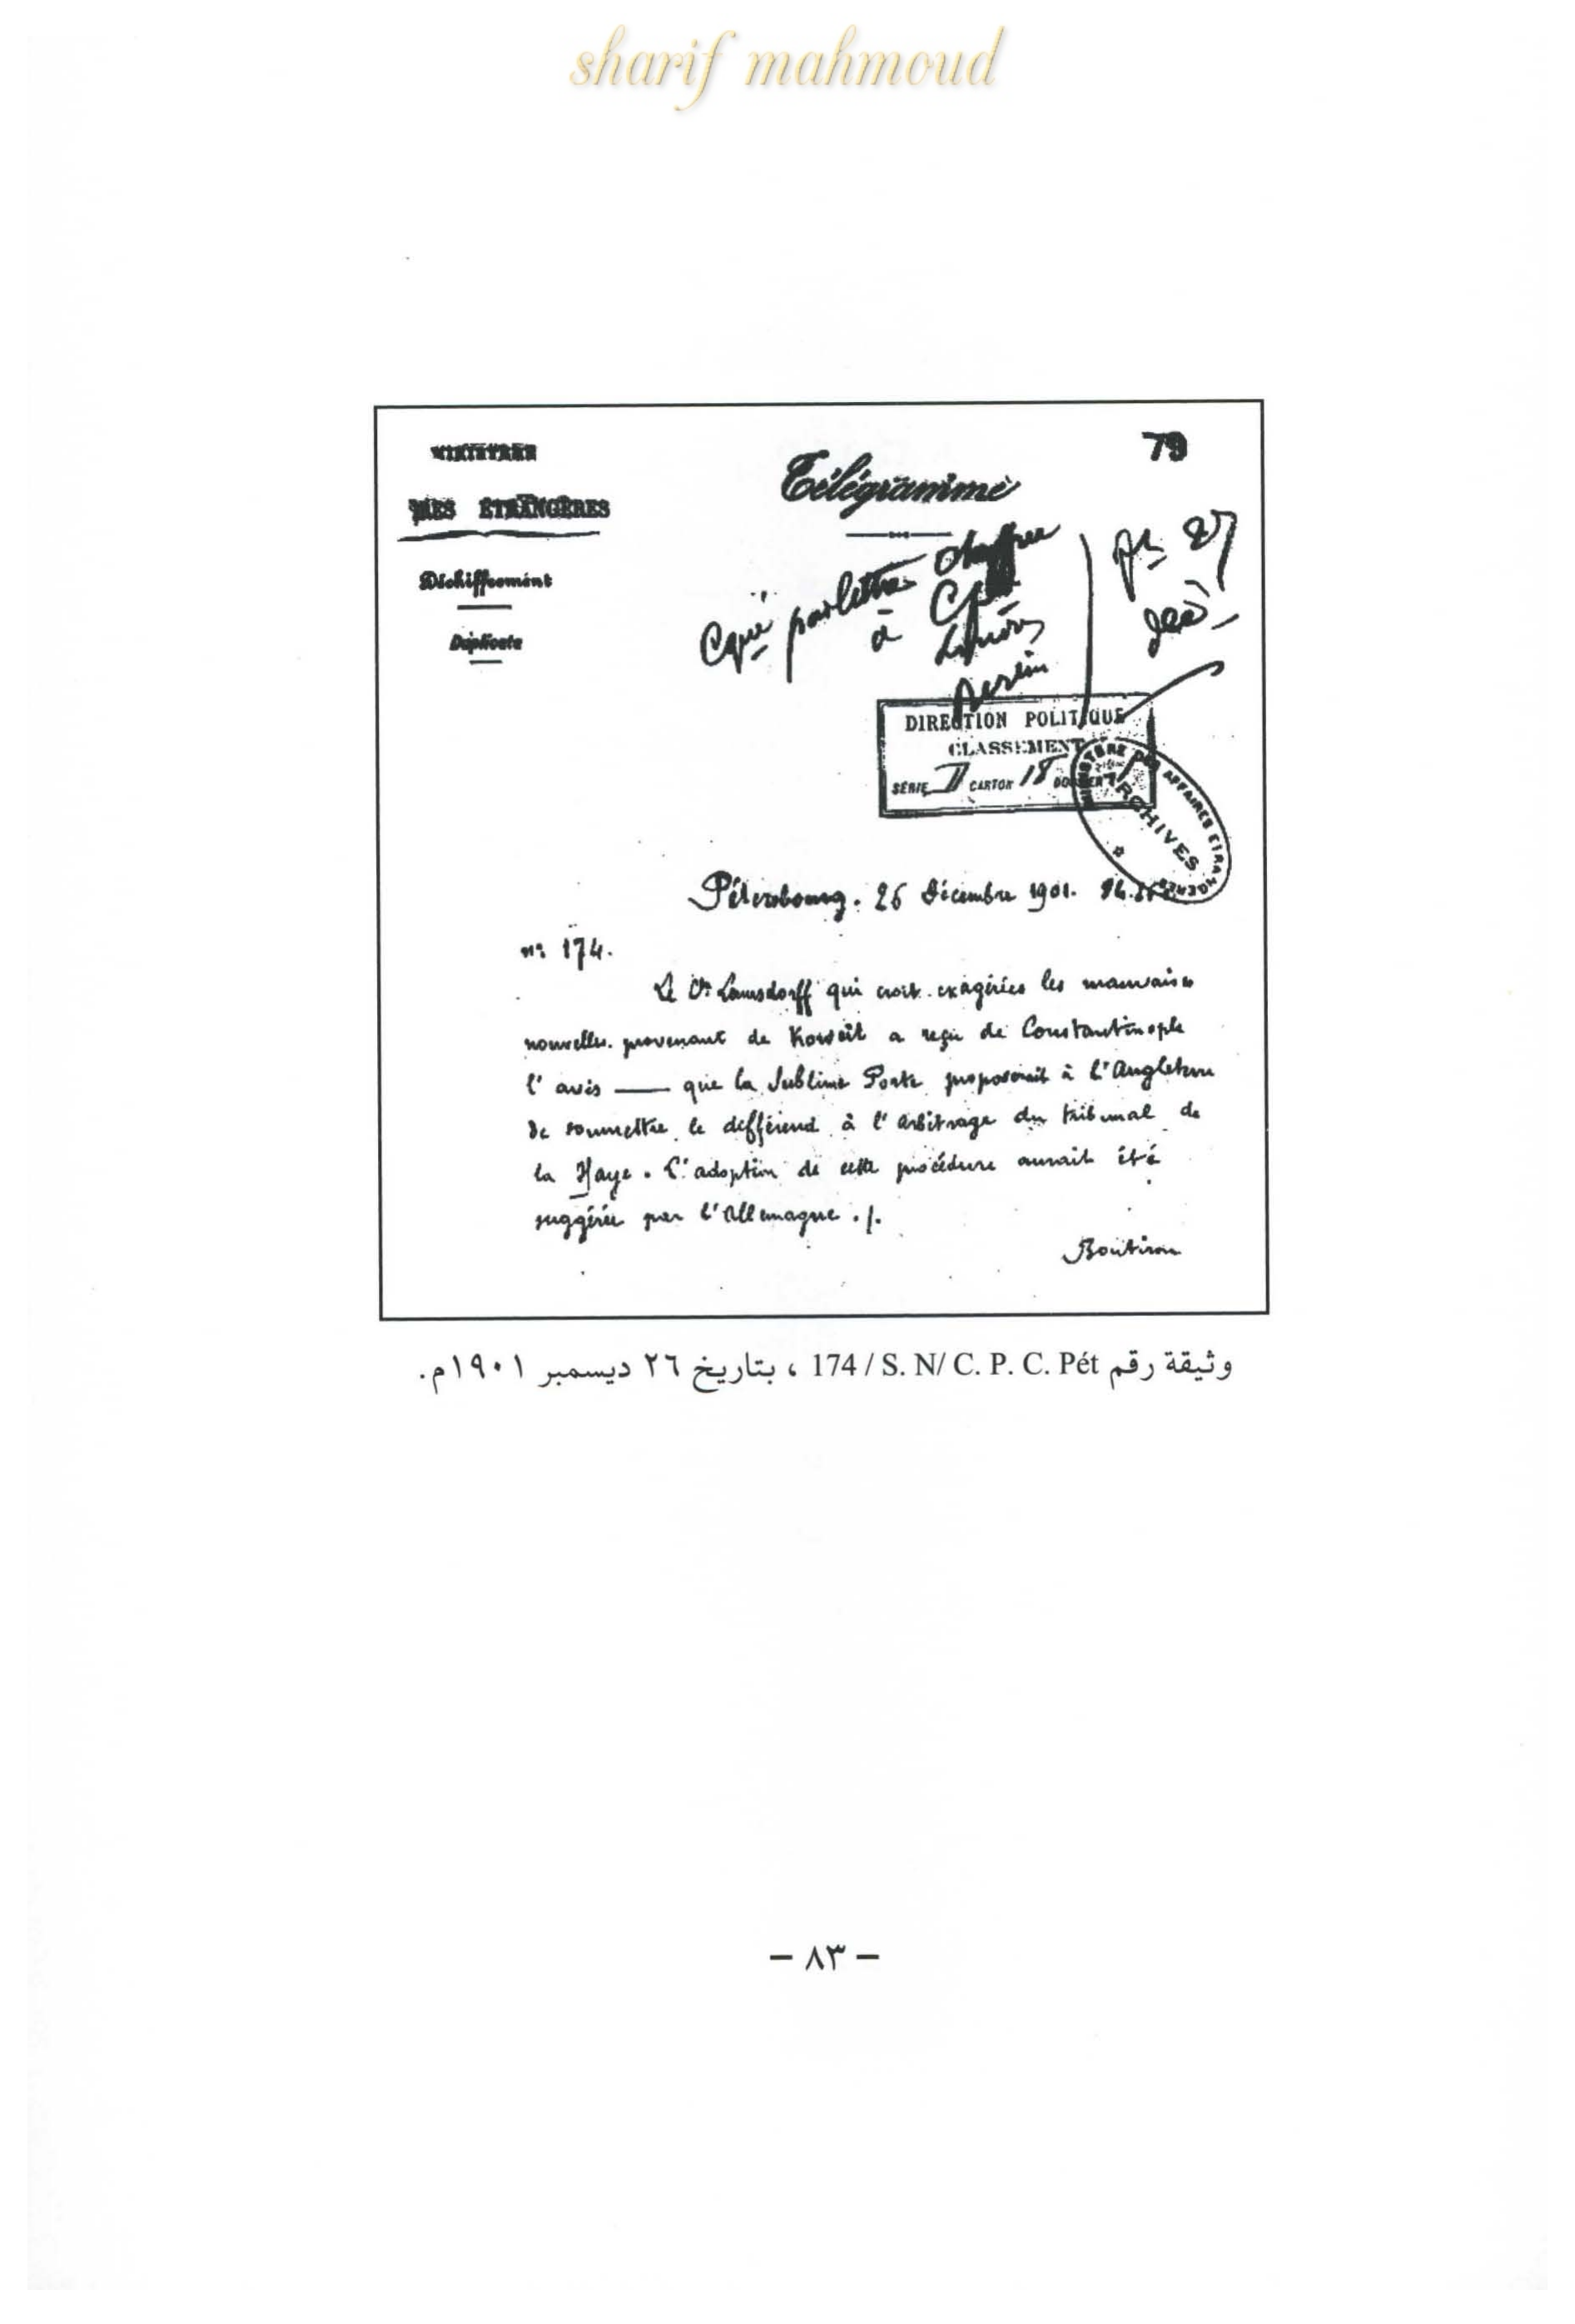 sharif mahmoud
79
MINISTÈRE
DES ÉTRANGÈRES
Télégramme
Déchiffrement
Duplicata
Cqué par lettre chiffrée
à Cple
Londres
Berlin
27
DIRECTION POLITIQUE
CLASSEMENT
SÉRIE CARTON 18 DOSSIER
MINISTÈRE DES AFFAIRES ETRANGERES
ARCHIVES
Pétersbourg. 26 Décembre 1901.
n: 174.
Le Cte Lamsdorff qui croit exagérées les mauvaises
nouvelles provenant de Koweït a reçu de Constantinople
l'avis —— que la Sublime Porte proposerait à l'Angleterre
de soumettre le différend à l'arbitrage du tribunal de
la Haye. L'adoption de cette procédure aurait été
suggérée par l'Allemagne ./.
Boutiron
وثيقة رقم 174 / S. N/ C. P. C. Pét ، بتاريخ ٢٦ ديسمبر ١٩٠١م.
– ٨٣ –